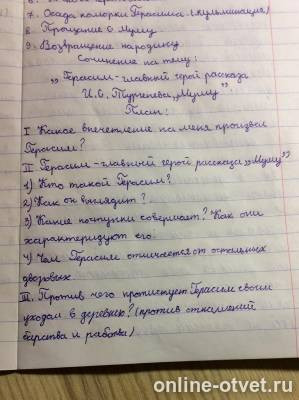 7. Осада каморки Герасима (кульминация)
8. Прощание с Муму
9. Возвращение на родину
Сочинение на тему:
„Герасим-главный герой рассказа
И.С. Тургенева „Муму"
План:
I Какое впечетление на меня произвёл
Герасим?
II Герасим-главный герой рассказа „Муму"
1) Кто такой Герасим?
2) Как он выглядит?
3) Какие поступки совершает? Как они
характеризуют его
4) Чем Герасим отличается от остальных
дворовых
III. Против чего протестует Герасим своим
уходом в деревню? (против отношений
барства и рабства)
online-otvet.ru